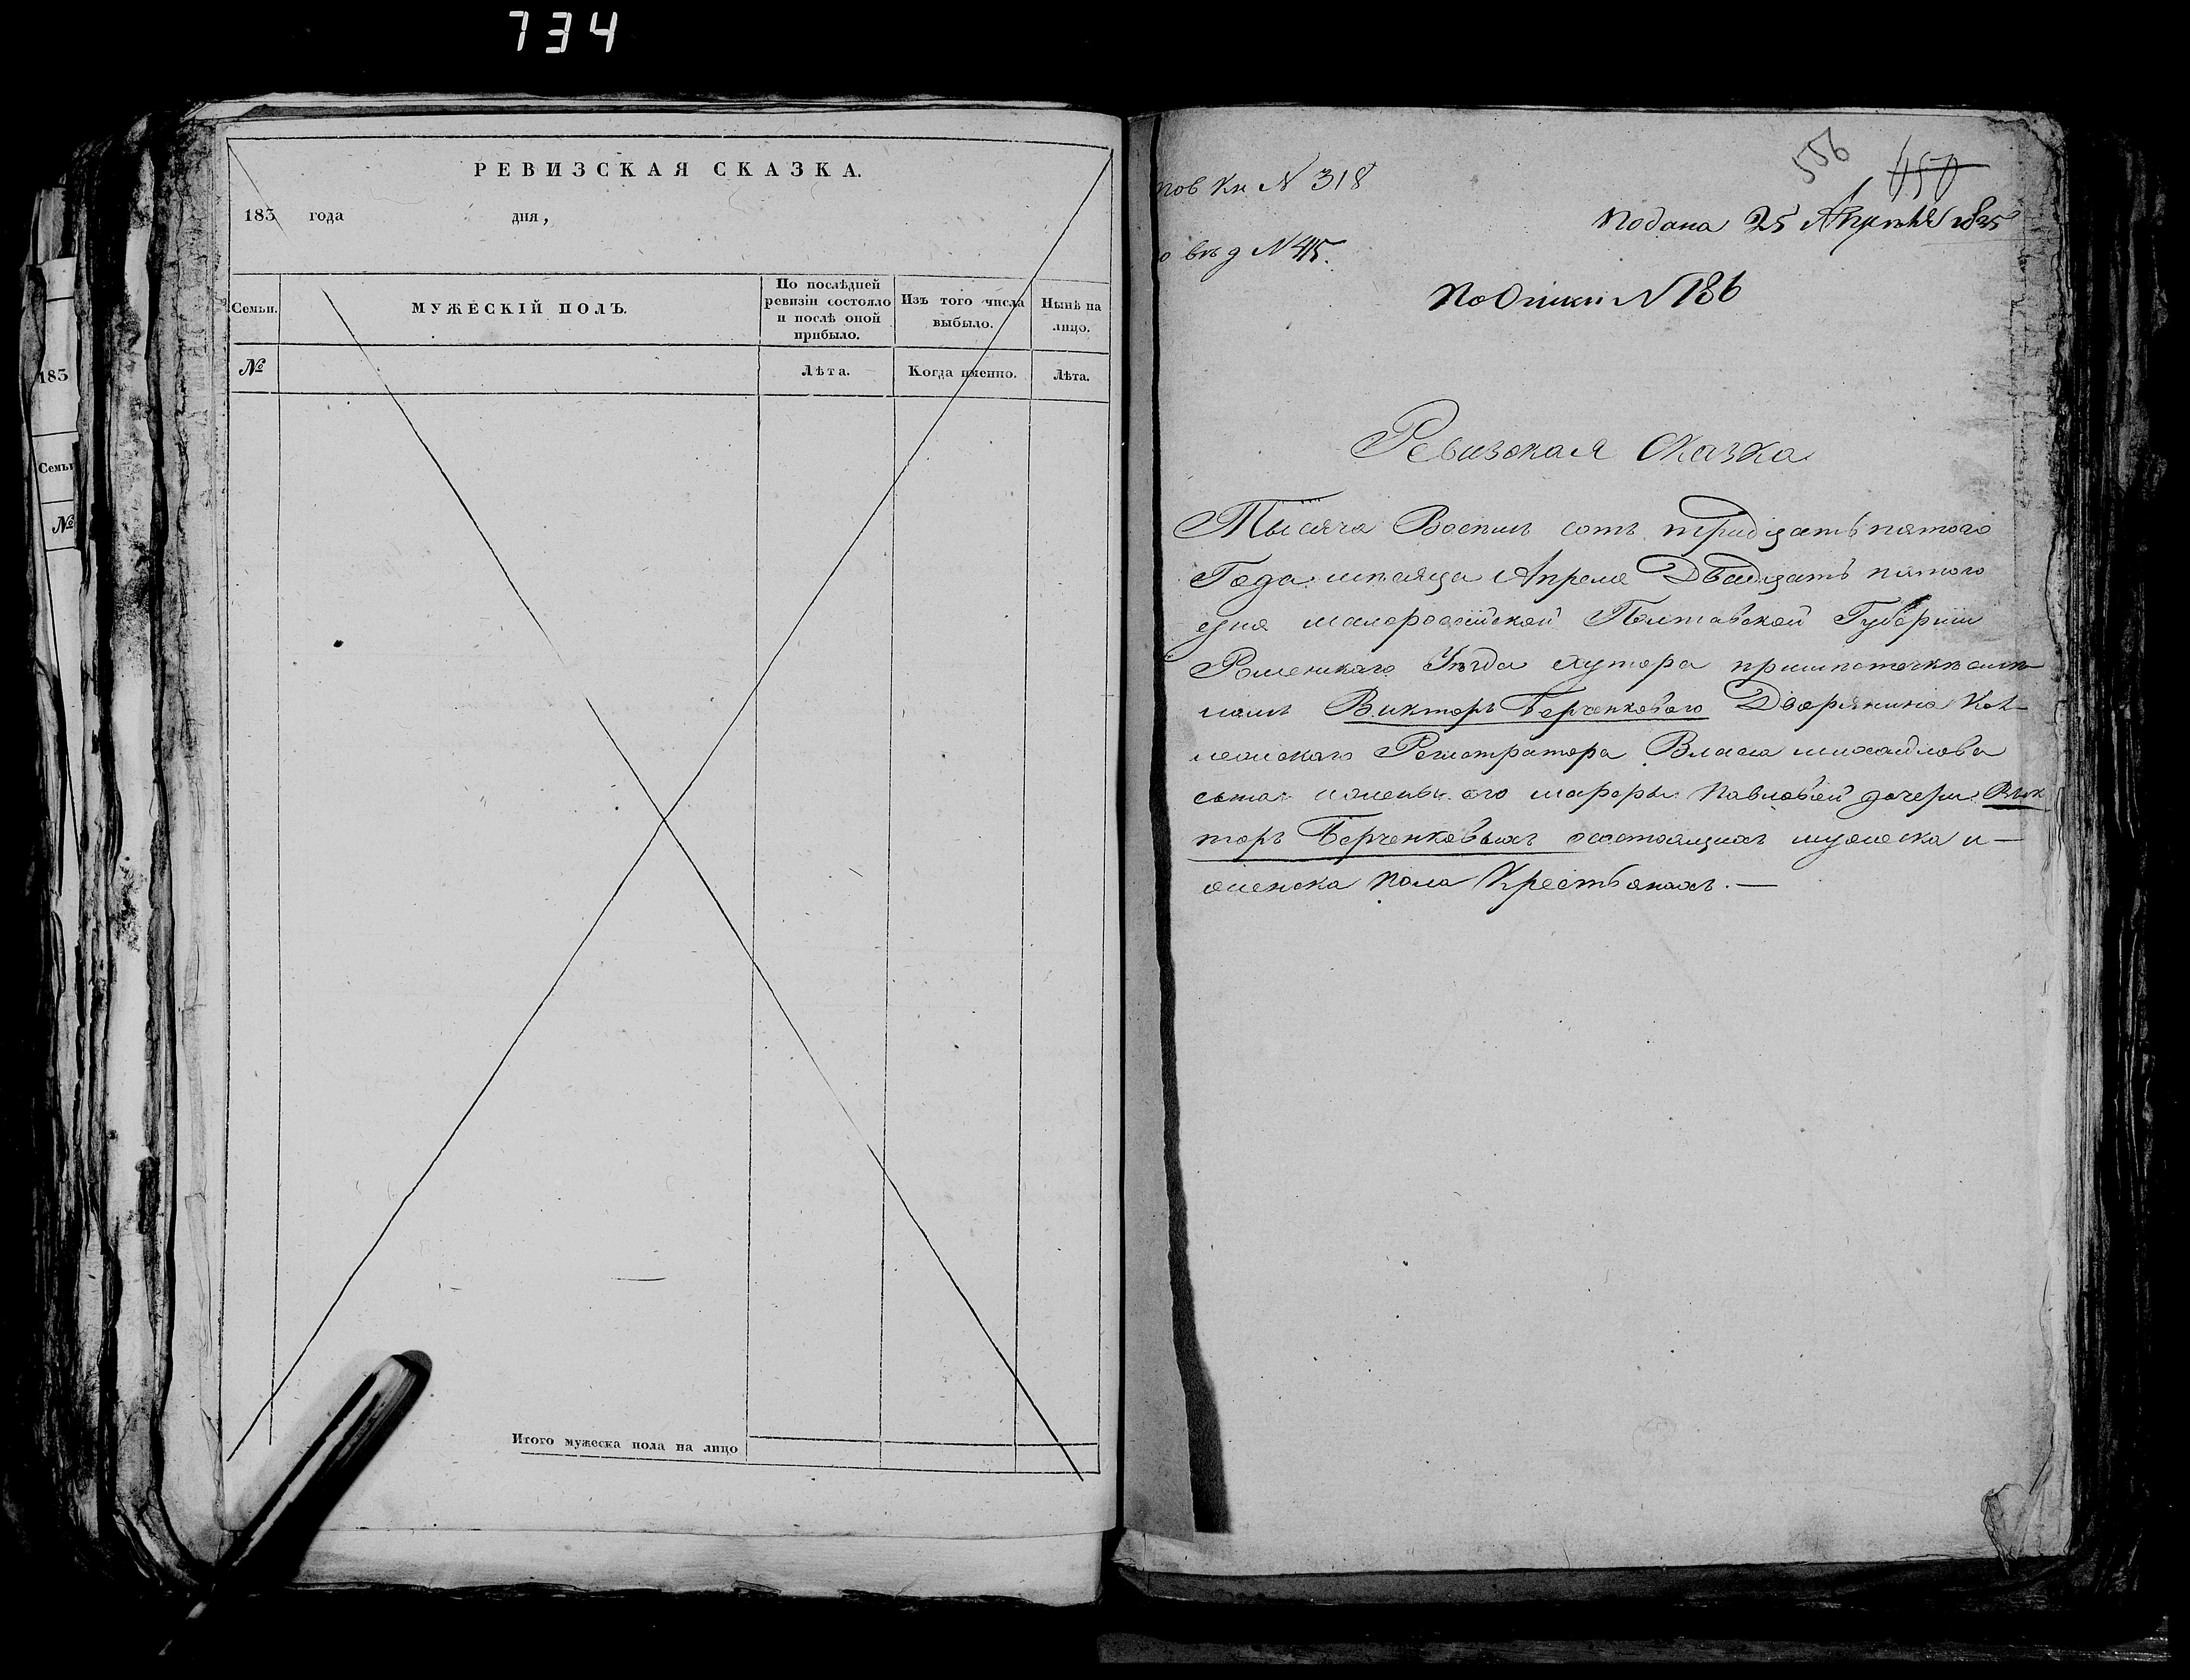 734
РЕВИЗСКАЯ СКАЗКА.
183 года дня,
Семьи.
МУЖЕСКІЙ ПОЛЪ.
По послѣдней ревизіи состояло и послѣ оной прибыло.
Изъ того числа выбыло.
Нынѣ на лицо.
№
Лѣта.
Когда именно.
Лѣта.
Итого мужеска пола на лицо
183
Семьи
№
556
пов Кн N 318
Подана 25 Апрѣля 1835
N 415.
По Описи N 186
Ревизская Сказка
Тысяча Восемь сотъ тридцать пятого
Года мѣсяца Апреля Двадцать пятого
дня малоросійской Полтавской Губерніи
Роменскаго Уѣзда хутора при
Викторъ Берченкового Дворянина Кол-
лежскаго Регистратора Власа михайлова
сына и жены его Павловой дочери Вик
торъ Берченковыхъ состоящихъ мужеска и —
женска пола Крестьянахъ. —